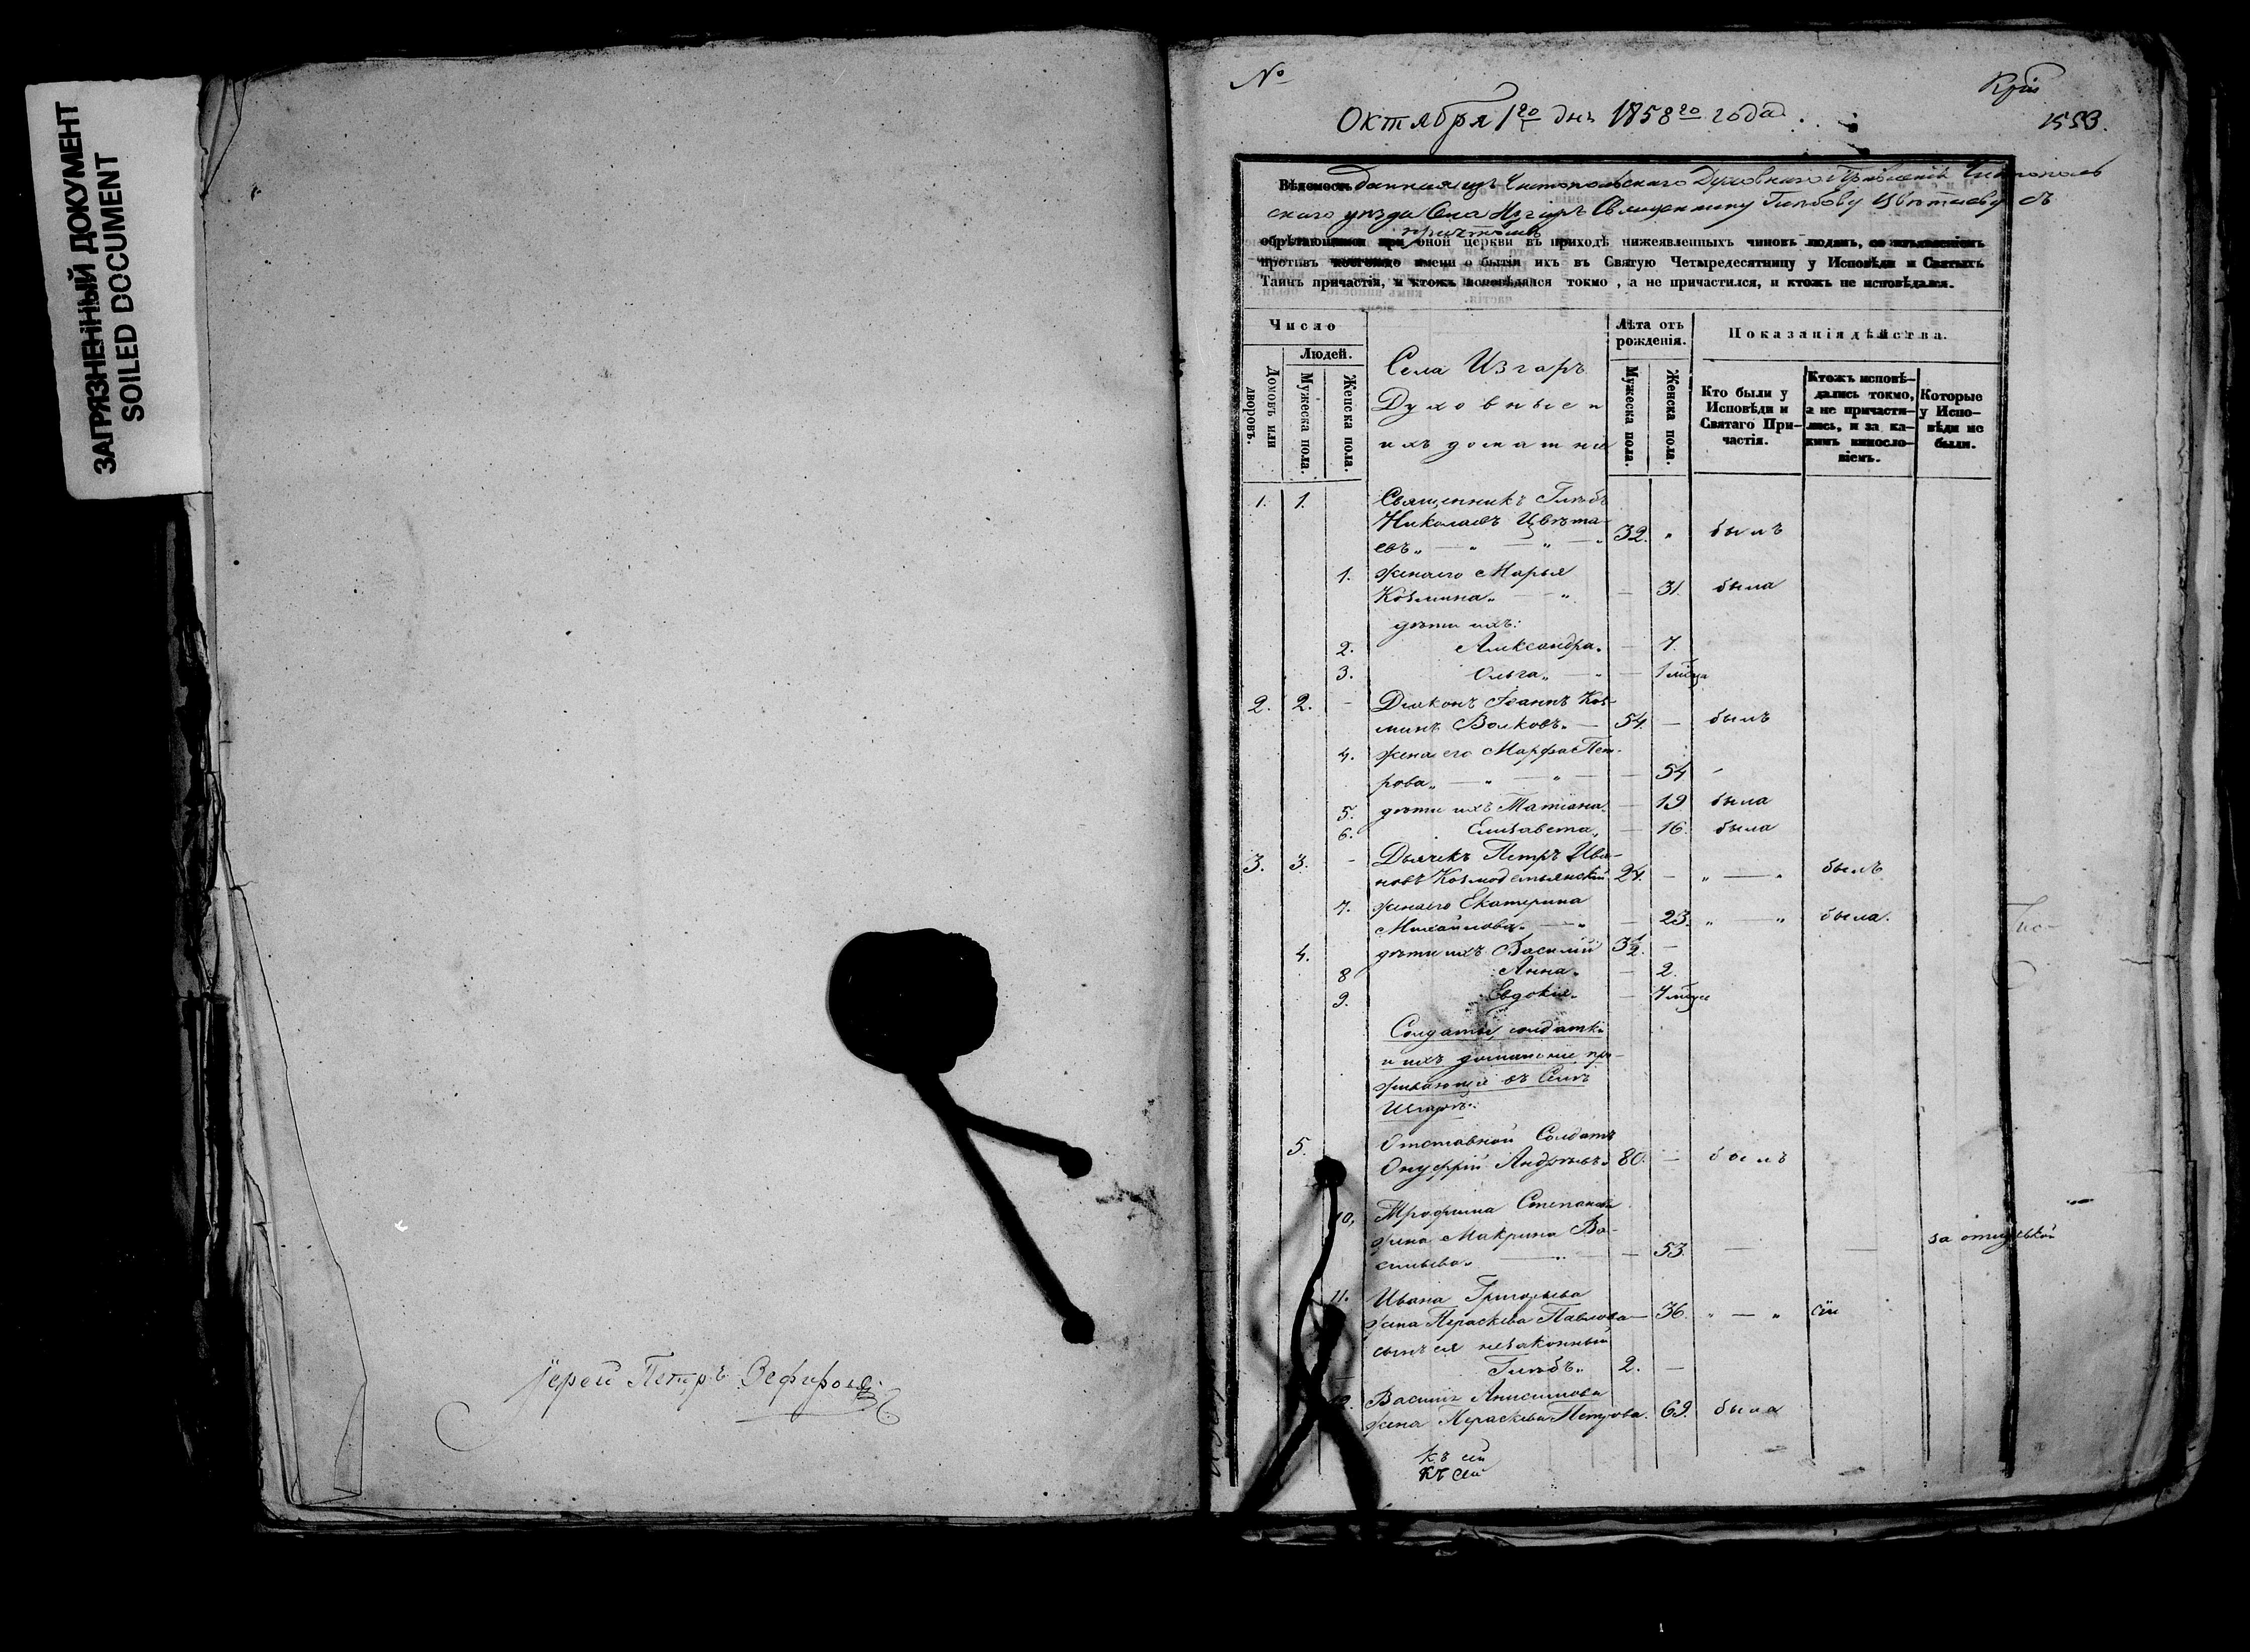 ЗАГРЯЗНЕННЫЙ ДОКУМЕНТ
SOILED DOCUMENT
Іерей Петръ Зефировъ
№
Октября 1го дня 1858го года.
1553.
Вѣдомость данная изъ Чистопольскаго Духовнаго Правленія Чистополь
скаго уѣзда Села Изгаръ Священнику Глѣбову Цвѣтаеву съ
причтомъ
обрѣтающимся при оной церкви въ приходѣ нижеявленныхъ чиновъ людямъ, со изъявленіемъ
противъ коегождо имени о бытіи ихъ въ Святую Четыредесятницу у Исповѣди и Святыхъ
Таинъ причастія, и ктожъ исповѣдался токмо, а не причастился, и ктожъ не исповѣдался.
Число
Людей.
Домовъ или дворовъ.
Мужеска пола.
Женска пола.
Села Изгаръ
Духовные и
ихъ домашніе
Лѣта отъ рожденія.
Мужеска пола.
Женска пола.
Показанія дѣйства.
Кто были у Исповѣди и Святаго Причастія.
Ктожъ исповѣдались токмо, а не причастились, и за какимъ винословіемъ.
Которые у Исповѣди не были.
1. 1. Священникъ Глѣбъ
Николаевъ Цвѣта-
евъ 32. былъ
1. Жена его Марья
Козмина 31. была
дѣти ихъ:
2. Александра 7.
3. Ольга 1 мѣсяца
2. 2. Діаконъ Іоаннъ Коз-
минъ Волковъ 54. былъ
4. Жена его Марфа Пет-
рова 54
5. дѣти ихъ Татіана 19 была
6. Елизавета 16. была
3. 3. Дьячекъ Петръ Ива-
новъ Козмодемьянскій 24. былъ
7. Жена его Екатерина
Михайлова 23. была.
4. дѣти ихъ Василій 3½.
8 Анна 2.
9. Евдокія 7 мѣсяц
Солдаты, солдатки
и ихъ домашніе про-
живающіе въ Селѣ
Изгарѣ:
5. Отставной Солдатъ
Онуфрій Андреевъ 80. былъ
10. Трофима Степанова
жена Макрина Ва-
сильева 53. за отлучкой
11. Ивана Григорьева
жена Параскева Павлова 36. сіи
сынъ ея незаконный
Глѣбъ 2.
12. Василія Анисимова
жена Параскева Петрова. 69. была
къ сей
къ сей